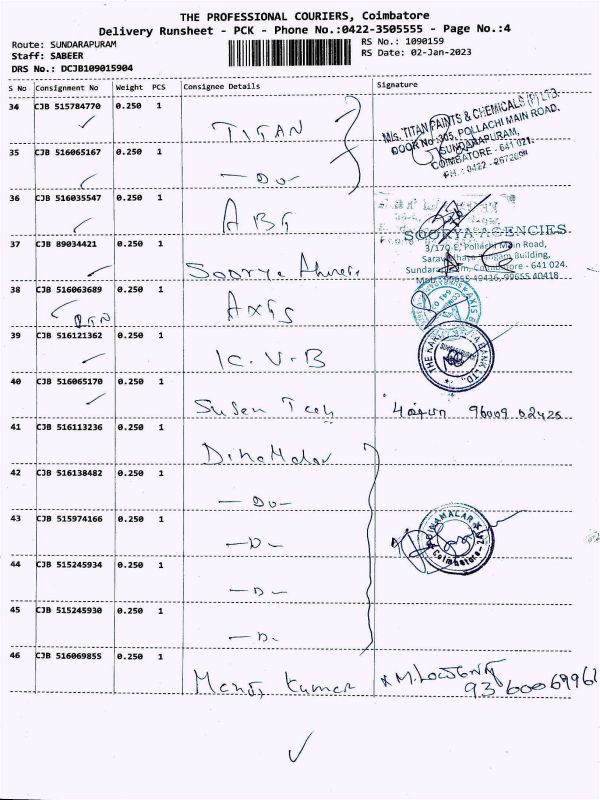 THE PROFESSIONAL COURIERS, Coimbatore
Delivery Runsheet - PCK - Phone No.:0422-3505555 - Page No.:4
Route: SUNDARAPURAM
RS No.: 1090159
Staff: SABEER
RS Date: 02-Jan-2023
DRS No.: DCJB109015904
S No Consignment No Weight PCS Consignee Details Signature
34 CJB 515784770 0.250 1 TITAN
M/s. TITAN PAINTS & CHEMICALS (P) LTD.
DOOR No :305, POLLACHI MAIN ROAD,
SUNDARAPURAM,
COIMBATORE - 641 021.
35 CJB 516065167 0.250 1 -DO-
36 CJB 516035547 0.250 1
37 CJB 89034421 0.250 1 Soorya
SOORYA AGENCIES
3/170-E, Pollachi Main Road,
Building,
Coimbatore - 641 024.
38 CJB 516063689 0.250 1 AXIS
39 CJB 516121362 0.250 1 K.V.B
40 CJB 516065170 0.250 1 Susen Tech
41 CJB 516113236 0.250 1 DinaMalar
42 CJB 516138482 0.250 1 -DO-
43 CJB 515974166 0.250 1 -D-
DINAMALAR
Coimbatore
44 CJB 515245934 0.250 1 -D-
45 CJB 515245930 0.250 1 -D-
46 CJB 516069855 0.250 1 Kumar